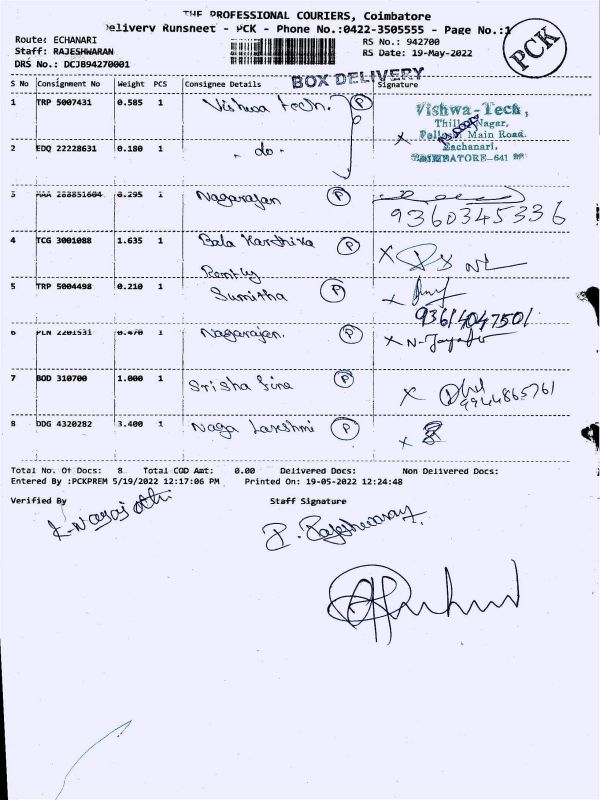 THE PROFESSIONAL COURIERS, Coimbatore
Delivery Runsheet - PCK - Phone No.:0422-3505555 - Page No.:1
Route: ECHANARI RS No.: 942700
Staff: RAJESHWARAN RS Date: 19-May-2022
DRS No.: DCJB94270001
PCK
BOX DELIVERY
S No Consignment No Weight PCS Consignee Details Signature
1 TRP 5007431 0.585 1 Vishwa tech. P
Vishwa-Tech,
Nagar,
Main Road,
Eachanari,
COIMBATORE-641
2 EDQ 22228631 0.180 1 - do -
3 288851604 0.295 1 Nagarajan P
9360345336
4 TCG 3001088 1.635 1 Bala Karthika P
5 TRP 5004498 0.210 1 Sumitha P
93614047501
6 PLN 2201531 0.470 1 Nagarajan. P
7 BOD 310700 1.000 1 P
9944865761
8 DDG 4320282 3.400 1 Naga Lakshmi P
Total No. Of Docs: 8 Total COD Amt: 0.00 Delivered Docs: Non Delivered Docs:
Entered By :PCKPREM 5/19/2022 12:17:06 PM Printed On: 19-05-2022 12:24:48
Verified By Staff Signature